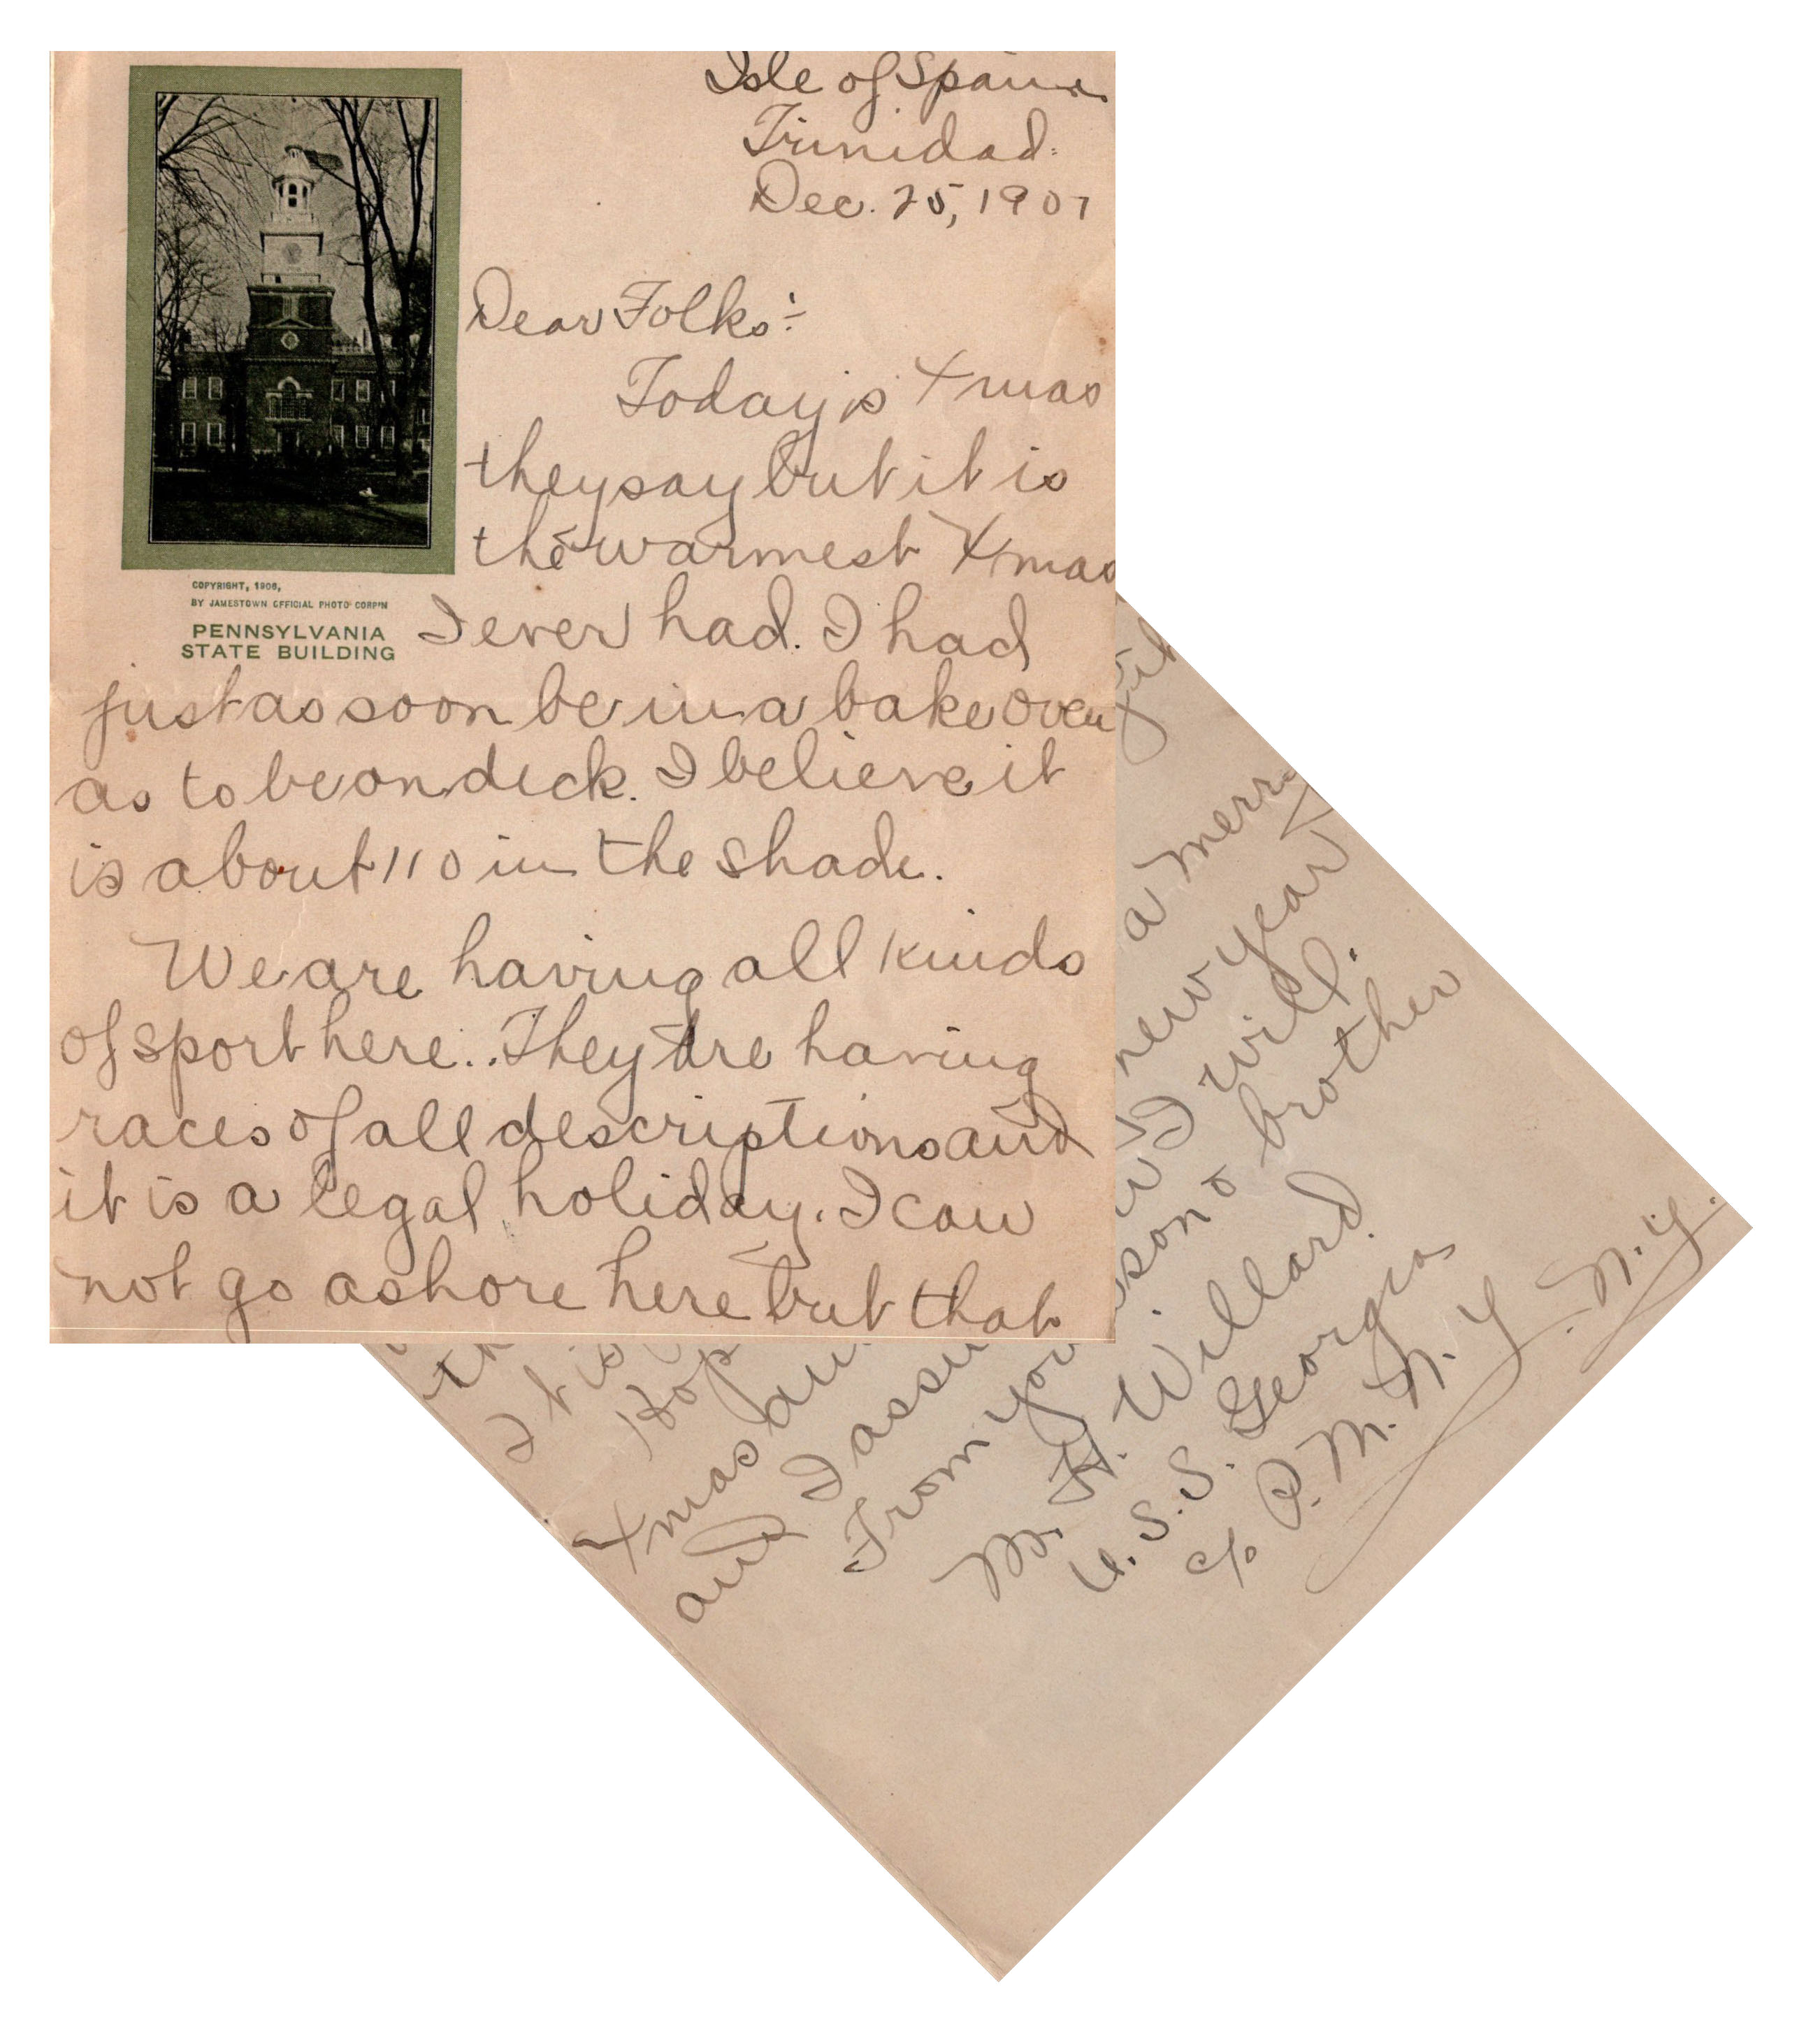 Isle of Spain
Trinidad.
Dec. 25, 1907
Dear Folks:-
Today is Xmas
they say but it is
the warmest Xmas
COPYRIGHT, 1906,
BY JAMESTOWN OFFICIAL PHOTO CORP'N
PENNSYLVANIA
STATE BUILDING
I ever had. I had
just as soon be in a bake oven
as to be on deck. I believe it
is about 110 in the shade.
We are having all kinds
of sport here. They are having
races of all descriptions and
it is a legal holiday. I can
not go ashore here but that
It is
Hop a merry
Xmas an new year
and I assu I will.
From you son & brother
M. H. Willard.
U.S.S. Georgia
c/o P.M. N.Y. N.Y.